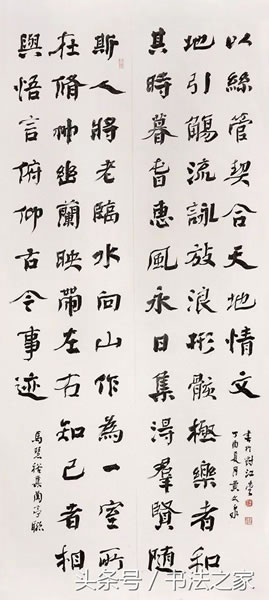 其時暮春惠風永日集得羣賢隨
地引觴流詠放浪形骸極樂者和
以絲管契合天地情文
斯人將老臨水向山作為一室所
在脩竹幽蘭映帶左右知己者相
與悟言俯仰古今事迹
馬慧裕集蘭亭聯
丁酉夏月黃文泉
头条号／书法之家